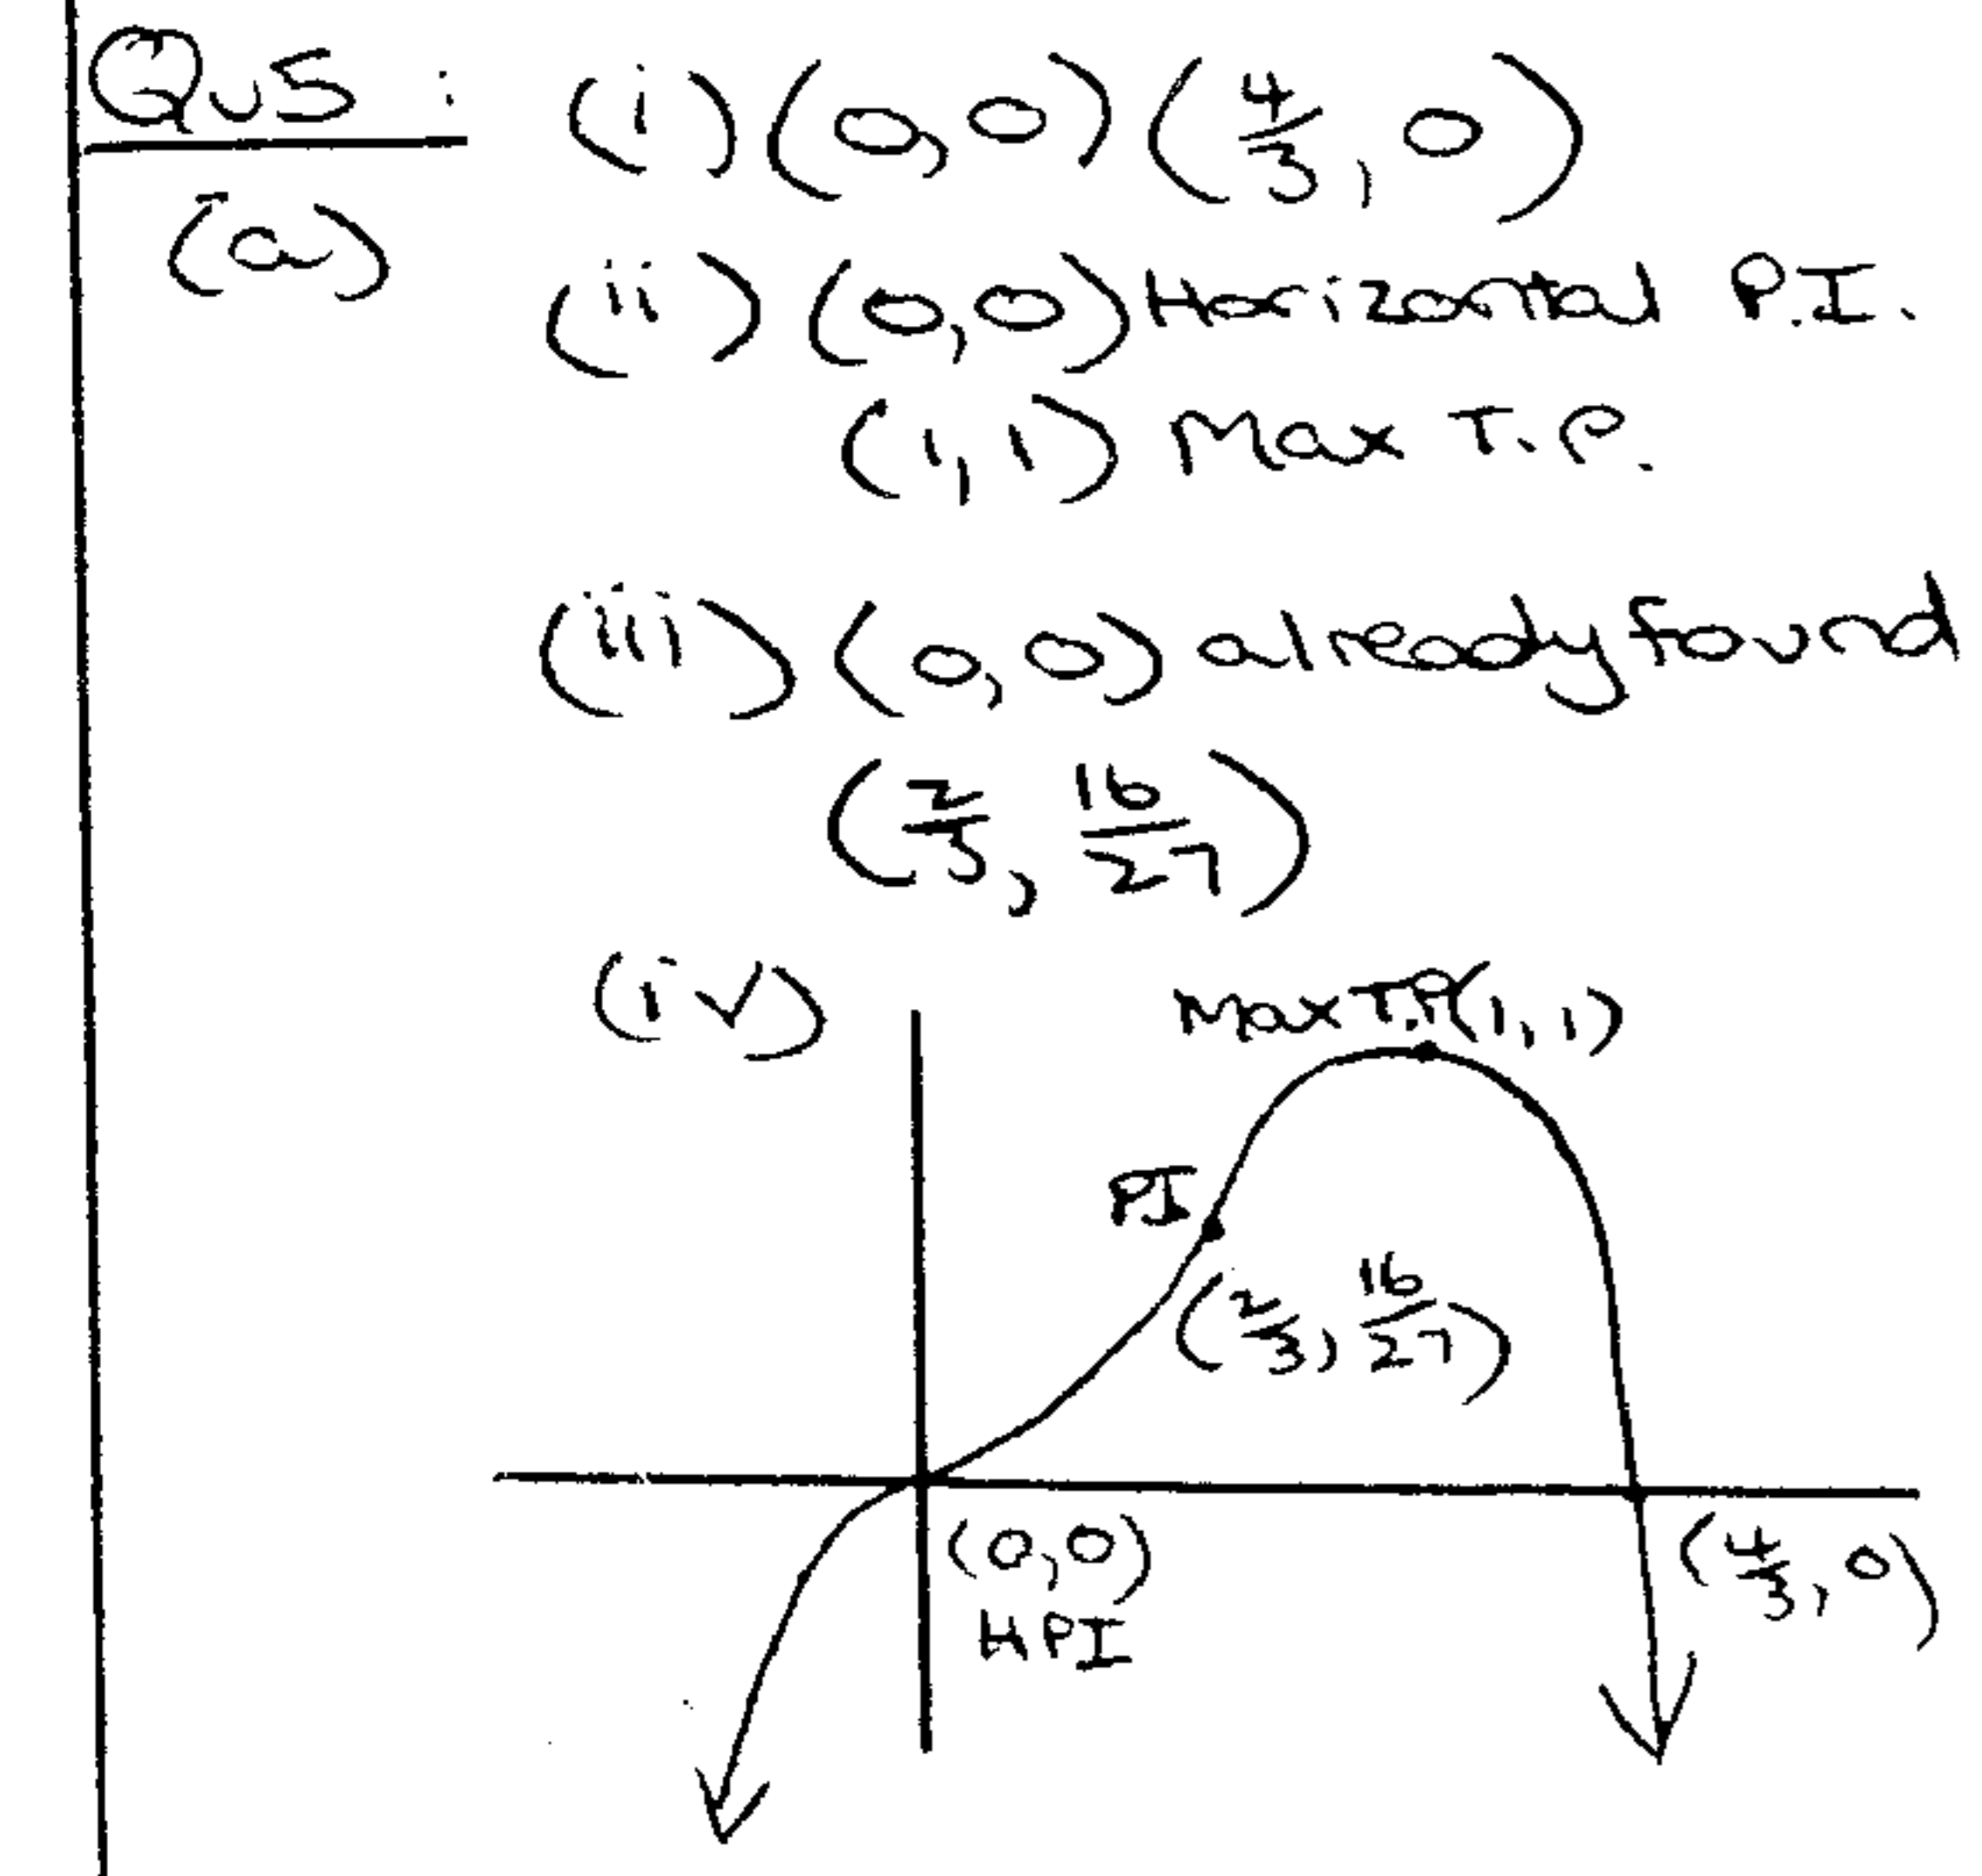 Qu 5 : (i) (0,0) (4/3, 0)
(a)
(ii) (0,0) Horizontal P.I.
(1,1) Max T.P.
(iii) (0,0) already found
(2/3, 16/27)
(iv)
Max T.P(1,1)
PI
(2/3, 16/27)
(0,0)
HPI
(4/3, 0)